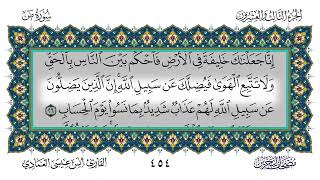 الجزء الثالث والعشرون
سورة ص
إِنَّا جَعَلْنَاكَ خَلِيفَةً فِي الْأَرْضِ فَاحْكُم بَيْنَ النَّاسِ بِالْحَقِّ
وَلَا تَتَّبِعِ الْهَوَىٰ فَيُضِلَّكَ عَن سَبِيلِ اللَّهِ إِنَّ الَّذِينَ يَضِلُّونَ
عَن سَبِيلِ اللَّهِ لَهُمْ عَذَابٌ شَدِيدٌ بِمَا نَسُوا يَوْمَ الْحِسَابِ ٢٦
٤٥٤